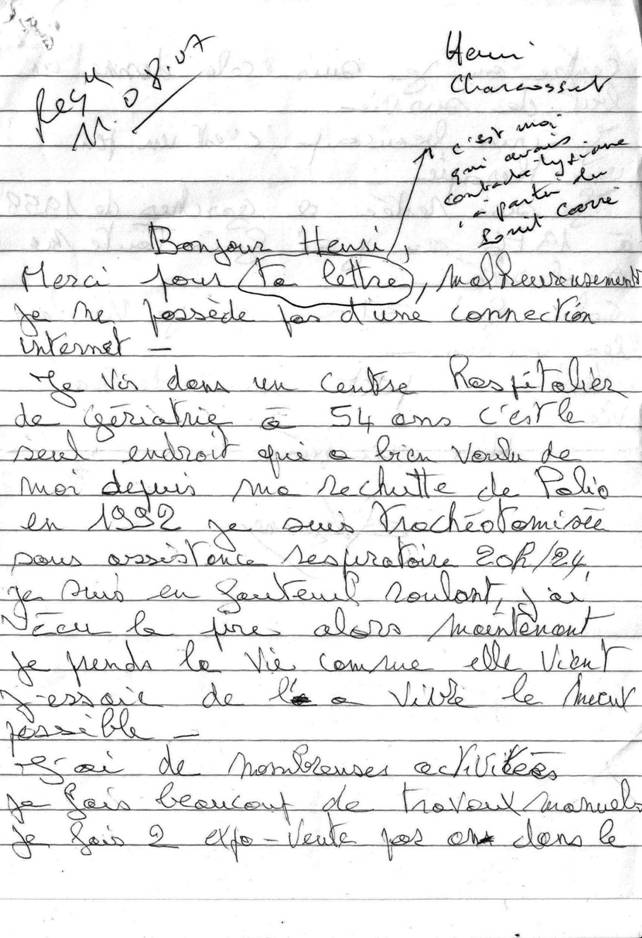 Reçu
11.08.07
Henri
Charcosset
c'est moi
qui avais
contacté Lysiane
à partir du
Petit Carré
Bonjour Henri,
Merci pour ta lettre, malheureusement
je ne possède pas d'une connection
internet -
Je vis dans un centre Hospitalier
de gériatrie à 54 ans c'est le
seul endroit qui a bien voulu de
moi depuis ma rechutte de Polio
en 1992 je suis trachéotomisée
sous assistance respiratoire 20h/24,
je suis en fauteuil roulant, j'ai
vécu le pire alors maintenant
je prends la vie comme elle vient
j'essaie de la vivre le mieux
possible -
J'ai de nombreuses activitées
je fais beaucoup de travaux manuels
je fais 2 expo-vente par an dans le